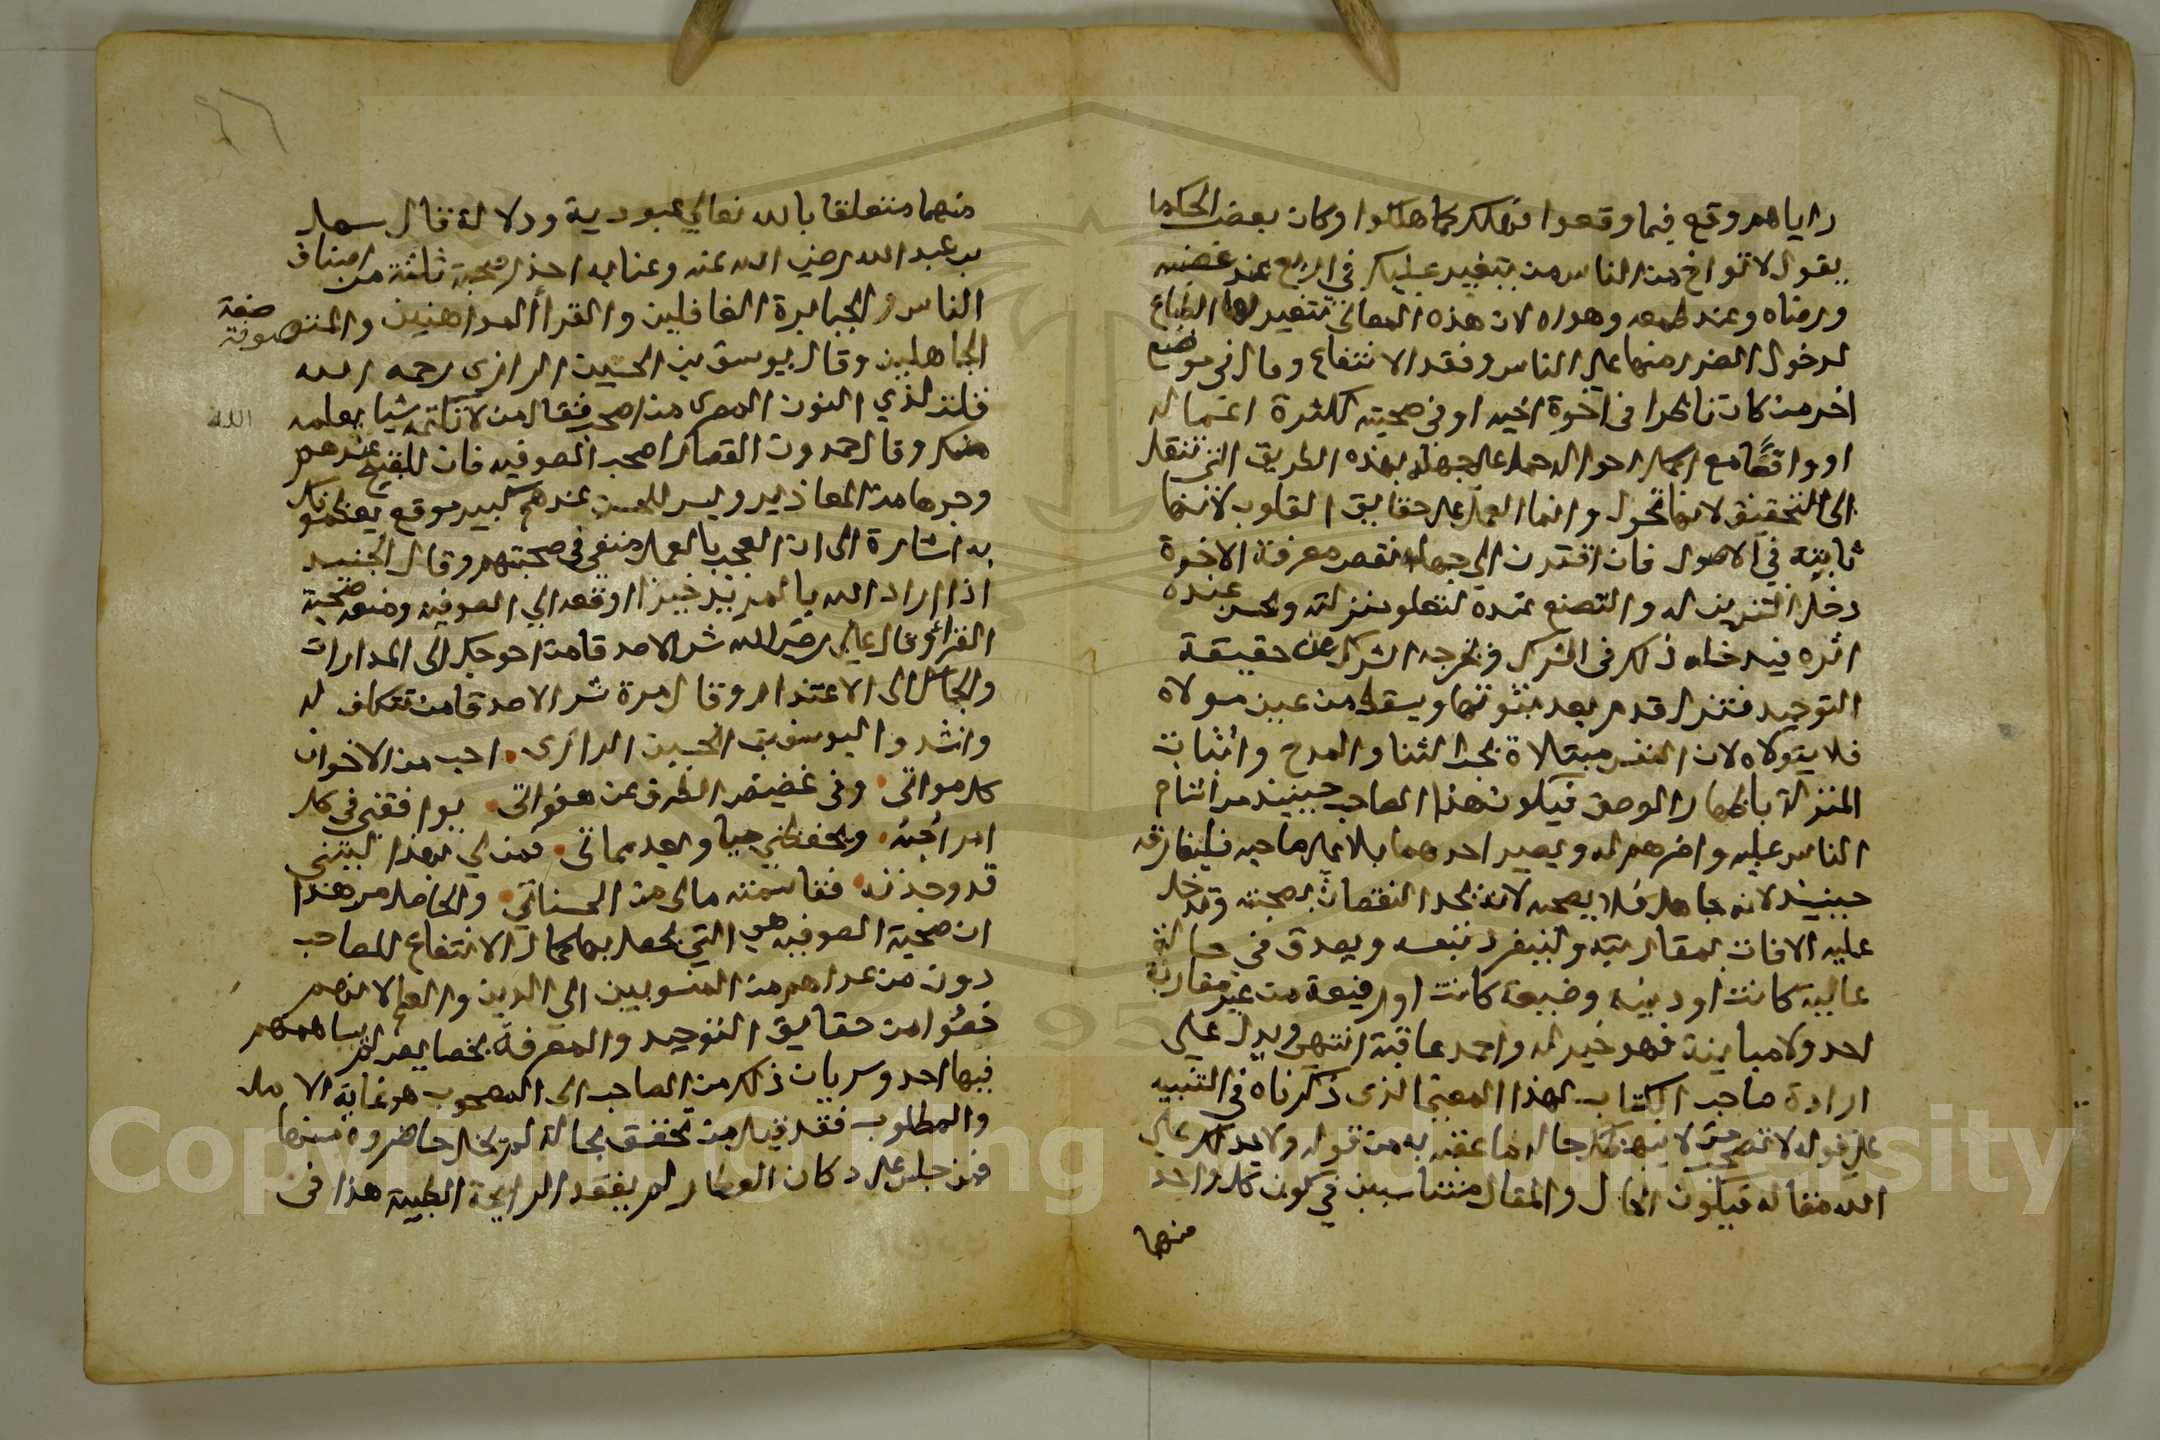 راياهم وقع فيما وقعوا فهلك كما هلكوا وكان بعض الحكما
يقول لا تواخ من الناس من يتغير عليك في اربع عند غضبه
ورضاه وعند طمعه وهواه لان هذه المعاني تتغير لها الطباع
لدخول الضرر منها على الناس وفقد الانتفاع وقال في موضع
اخر من كان ناظرا في اخوة اخيه او في صحبته لكثرة اعماله
او واقفا مع اكمال احواله حمله على جهله بهذه الطريق التي تنقل
الى التحقيق لانها تحول وانما العمل على حقايق القلوب لانها
ثابتة في الاصول فان اقترن الى جهله نقص معرفة الاخوة
دخل التزين له والتصنع عنده لتعلو منزلته ويحسن عنده
اثره فيدخله ذلك في الشرك ويخرجه الشرك من حقيقة
التوحيد فتزل قدم بعد ثبوتها ويسقط من عين مولاه
فلا يتولاه لان النفس مبتلاة بحب الثنا والمدح واثبات
المنزلة باظهار الوصف فيكون هذا الصاحب حينيذ من اشام
الناس عليه واضرهم له ويصير احدهما بلا على صاحبه فليفارقه
حينيذ لانه جاهل فلا يصحبه لانه يجد النقصان بصحبته وتدخل
عليه الافات بمقاربته ولينفرد بنفسه ويصدق في حاله
عالية كانت او دنية وضيعة كانت او رفيعة من غير مقاربة
احد ولا مباينة فهو خير له واحمد عاقبة انتهى ويدل على
ارادة صاحب الكتاب لهذا المعنى الذي ذكرناه في التنبيه
على قوله لا تصحب من لا ينهضك حاله ما عقبه به من قوله ولا يدلك على
الله مقاله فيكون الحال والمقال متناسبين في كون كل واحد
منهما
منهما متعلقا بالله تعالى عبودية ودلالة قال سهل
بن عبد الله رضي الله عنه وعنا به احذر صحبة ثلثة من اصناف
الناس الجبابرة الغافلين والقرا المداهنين والمتصوفة
صفة
الجاهلين وقال يوسف بن الحسين الرازي رحمه الله
قلت لذي النون المصري من اصحب فقال من لا تكتمه شيا يعلمه
الله
منك وقال حمدون القصار اصحب الصوفية فان للقبيح عندهم
وجوها من المعاذير وليس للحسن عندهم كبير موقع يعظمونك
به اشارة الى ان العجب بالعمل منفي في صحبتهم وقال الجنيد
اذا اراد الله بالمريد خيرا اوقعه الى الصوفية ومنعه صحبة
القرا وقال علي رضي الله شر الاصدقا من احوجك الى المدارات
والجاك الى الاعتذار وقال مرة شر الاصدقا من تتكلف له
وانشدوا ليوسف بن الحسين الرازي • احب من الاخوان
كل مواتي • وفي غضيض الطرف عن هفواتي • يوافقني في كل
امر احبه • ويحفظني حيا وبعد مماتي • فمن لي بهذا ليتني
قد وجدته • فقاسمته مالي من الحسناتي • والحاصل من هذا
ان صحبة الصوفية هي التي يحصل بها كمال الانتفاع للصاحب
دون من عداهم من المنسوبين الى الدين والعلم لانهم
خصوا من حقايق التوحيد والمعرفة بخصايص لم يساهمهم
فيها احد وسريان ذلك من الصاحب الى المصحوب هو غاية الامل
والمطلوب فقد قيل من تحقق بحالة لم يخل حاضروه منها
فمن جلس على دكان العطار لم يفقد الرايحة الطيبة هذا في